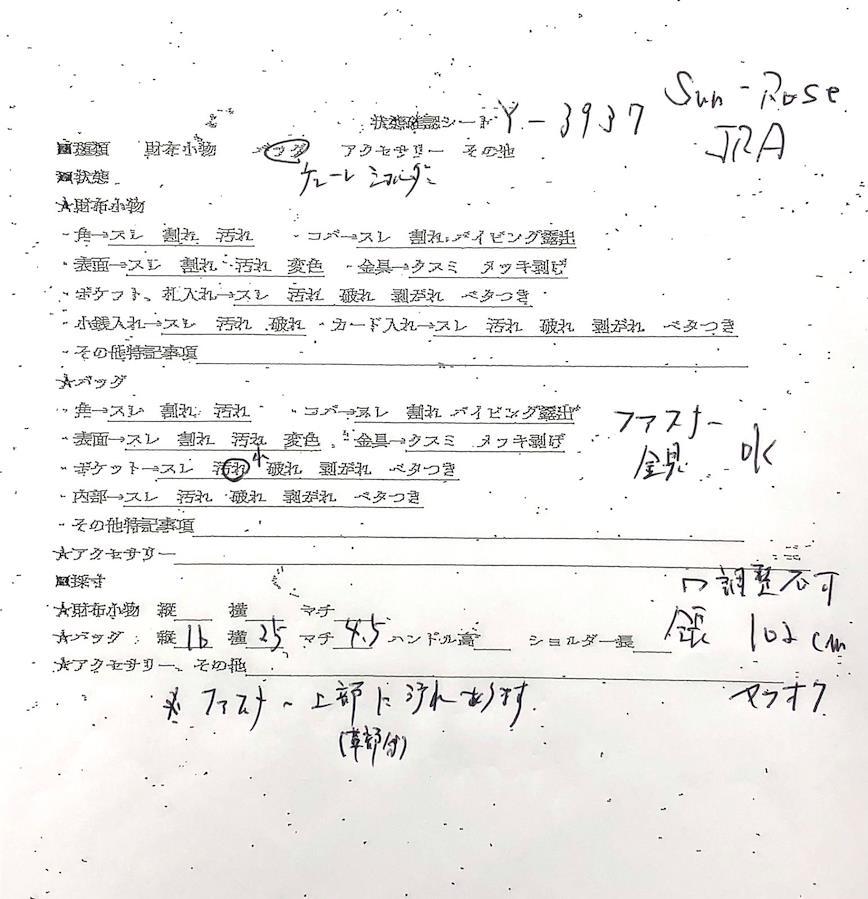 Sun-Rose
JRA
状態確認シート Y-3937
■種類 財布小物 バッグ アクセサリー その他
■状態
ショルダー
★財布小物
・角→スレ 割れ 汚れ ・コバ→スレ 割れ パイピング露出
・表面→スレ 割れ 汚れ 変色 ・金具→クスミ メッキ剥げ
・ポケット、札入れ→スレ 汚れ 破れ 剥がれ ベタつき
・小銭入れ→スレ 汚れ 破れ ・カード入れ→スレ 汚れ 破れ 剥がれ ベタつき
・その他特記事項
★バッグ
・角→スレ 割れ 汚れ ・コバ→スレ 割れ パイピング露出
・表面→スレ 割れ 汚れ 変色 ・金具→クスミ メッキ剥げ
・ポケット→スレ 汚れ 小 破れ 剥がれ ベタつき
ファスナー
・内部→スレ 汚れ 破れ 剥がれ ベタつき
・その他特記事項
★アクセサリー
■採寸
調整不可
★財布小物 縦 横 マチ
★バッグ 縦 16 横 25 マチ 4.5 ハンドル高 ショルダー長
102cm
★アクセサリー、その他
※ファスナー上部に汚れあります
(革部分)
ヤフオク